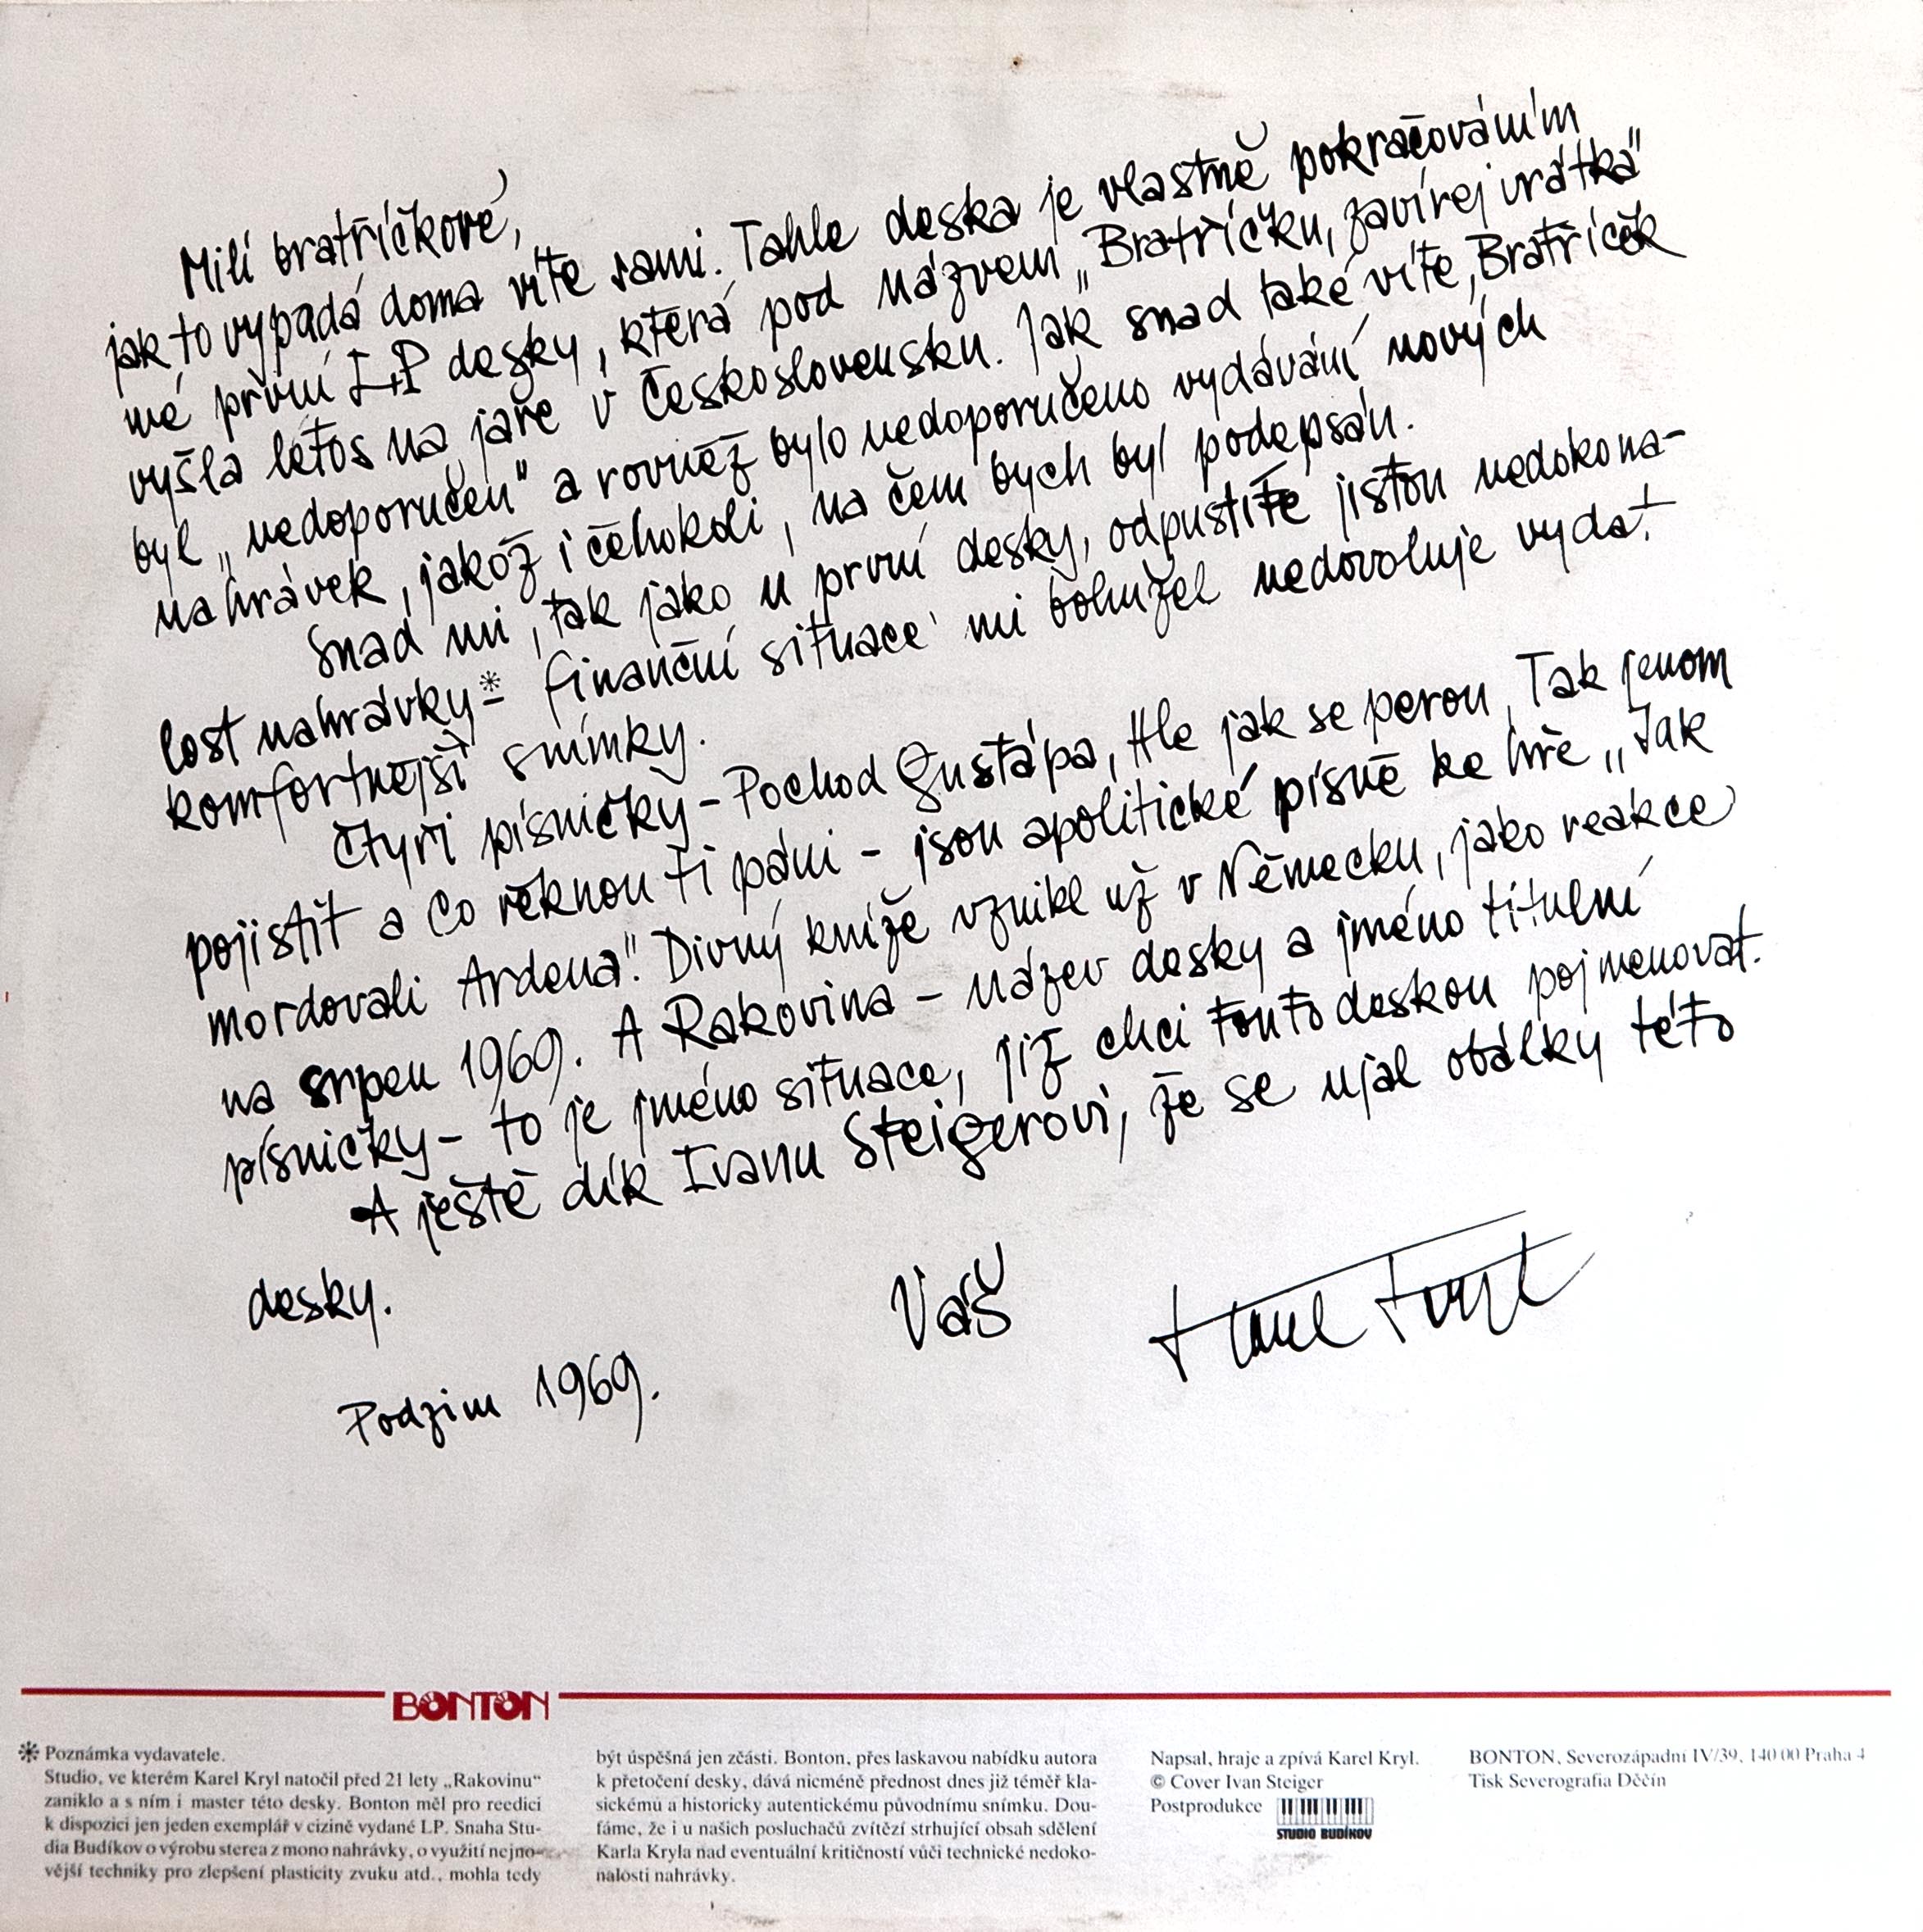 Milí bratříčkové,
jak to vypadá doma víte sami. Tahle deska je vlastně pokračováním
mé první LP desky, která pod názvem „Bratříčku, zavírej vrátka"
vyšla letos na jaře v Československu. Jak snad také víte, Bratříček
byl „nedoporučen" a rovněž bylo nedoporučeno vydávání nových
nahrávek, jakož i čehokoli, na čem bych byl podepsán.
Snad mi, tak jako u první desky, odpustíte jistou nedokona-
lost nahrávky* – finanční situace mi bohužel nedovoluje vydat
komfortnější snímky.
Čtyři písničky – Pochod Gustápa, Hle jak se perou, Tak jenom
pojistit a Co řeknou ti páni – jsou apolitické písně ke hře „Jak
mordovali Ardena". Divný kníže vznikl už v Německu, jako reakce
na srpen 1969. A Rakovina – název desky a jméno titulní
písničky – to je jméno situace, jíž chci touto deskou pojmenovat.
A ještě dík Ivanu Steigerovi, že se ujal obálky této
desky.
Váš Karel Kryl
Podzim 1969.
BONTON
* Poznámka vydavatele.
Studio, ve kterém Karel Kryl natočil před 21 lety „Rakovinu"
zaniklo a s ním i master této desky. Bonton měl pro reedici
k dispozici jen jeden exemplář v cizině vydané LP. Snaha Stu-
dia Budíkov o výrobu sterea z mono nahrávky, o využití nejno-
vější techniky pro zlepšení plasticity zvuku atd., mohla tedy
být úspěšná jen zčásti. Bonton, přes laskavou nabídku autora
k přetočení desky, dává nicméně přednost dnes již téměř kla-
sickému a historicky autentickému původnímu snímku. Dou-
fáme, že i u našich posluchačů zvítězí strhující obsah sdělení
Karla Kryla nad eventuální kritičností vůči technické nedoko-
nalosti nahrávky.
Napsal, hraje a zpívá Karel Kryl.
© Cover Ivan Steiger
Postprodukce
STUDIO BUDÍKOV
BONTON, Severozápadní IV/39, 140 00 Praha 4
Tisk Severografia Děčín